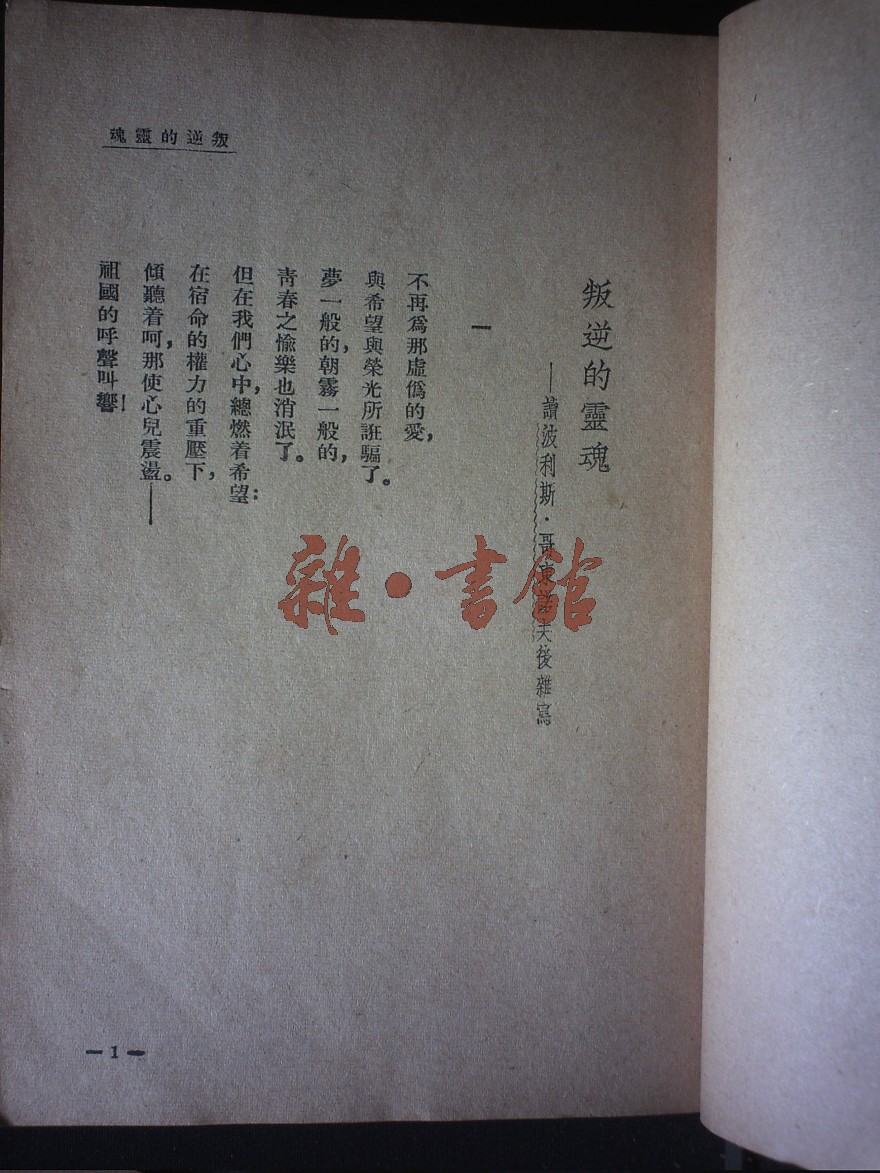 叛逆的靈魂
叛逆的靈魂
——讀波利斯·哥東諾夫後雜寫
一
不再爲那虛僞的愛，
與希望與榮光所誑騙了。
夢一般的，朝霧一般的，
靑春之愉樂也消泯了。
但在我們心中，總燃着希望：
在宿命的權力的重壓下，
傾聽着呵，那使心兒震盪。——
祖國的呼聲叫響！
—1—
雜·書館